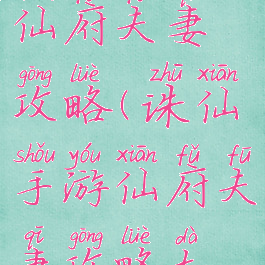 仙府夫妻
gōng lüè zhū xiān
攻略(诛仙
shǒu yóu xiān fǔ fū
手游仙府夫
qī gōng lüè dà
妻攻略大